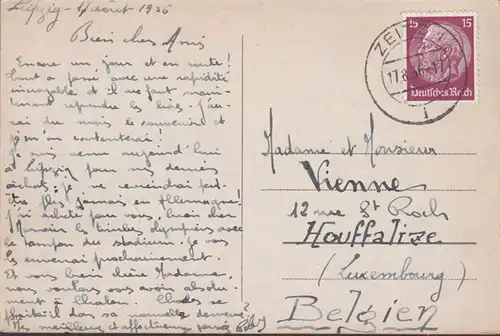 Leipzig - 17 août 1936
Bien chers Amis
Encore un jour et en route!
Tout a passé avec une rapidité
incroyable et il va faut main-
tenant reprendre les livres. J'au-
rai du mois le souvenir et
m'en contenterai!
Je suis venu aujourd'hui
à Leipzig pour mes derniers
achats; je ne reviendrai peut-
être plus jamais en Allemagne!
J'ai acheté pour vous, bien cher
Monsieur les timbres olympiens avec
le tampon du stadium. Je vous
les enverrai prochainement.
Et vous bien chère Madame,
nous voulons vous avoir absolu-
ment à Chalon. Charles se
plaît-il dans sa nouvelle demeure?
Mes meilleurs et affectueux
15 15
Deutsches Reich
ZEITZ
17.8.36
i
Madame et Monsieur
Vienne
12 rue St Roch
Houffalize
(Luxembourg)
Belgien